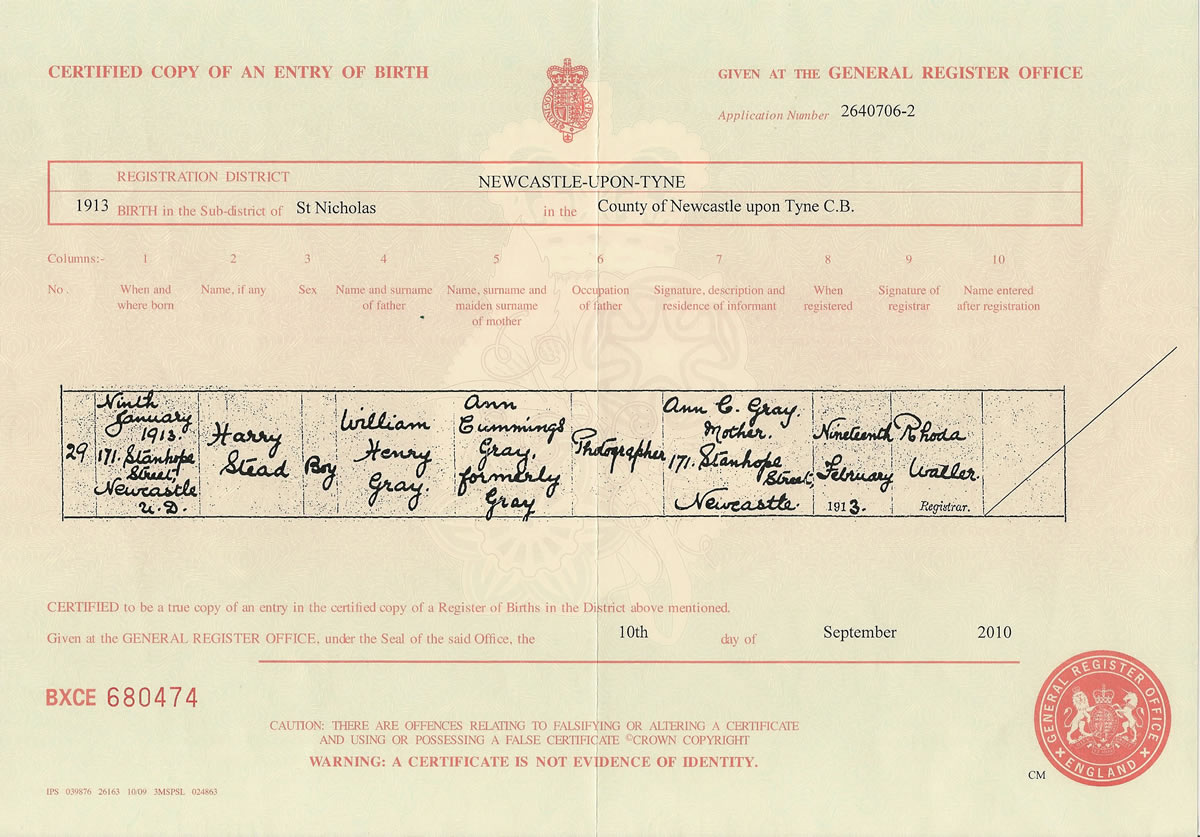 CERTIFIED COPY OF AN ENTRY OF BIRTH
GIVEN AT THE GENERAL REGISTER OFFICE
Application Number 2640706-2
REGISTRATION DISTRICT NEWCASTLE-UPON-TYNE
1913 BIRTH in the Sub-district of St Nicholas in the County of Newcastle upon Tyne C.B.
Columns:- 1 2 3 4 5 6 7 8 9 10
No .
When and
where born
Name, if any
Sex
Name and surname
of father
Name, surname and
maiden surname
of mother
Occupation
of father
Signature, description and
residence of informant
When
registered
Signature of
registrar
Name entered
after registration
29
Ninth
January
1913.
171. Stanhope
Street,
Newcastle
U.D.
Harry
Stead
Boy
William
Henry
Gray.
Ann
Cummings
Gray,
formerly
Gray
Photographer
Ann C. Gray.
Mother.
171. Stanhope
Street,
Newcastle.
Nineteenth
February
1913.
Rhoda
Waller.
Registrar.
CERTIFIED to be a true copy of an entry in the certified copy of a Register of Births in the District above mentioned.
Given at the GENERAL REGISTER OFFICE, under the Seal of the said Office, the 10th day of September 2010
BXCE 680474
CAUTION: THERE ARE OFFENCES RELATING TO FALSIFYING OR ALTERING A CERTIFICATE
AND USING OR POSSESSING A FALSE CERTIFICATE ©CROWN COPYRIGHT
WARNING: A CERTIFICATE IS NOT EVIDENCE OF IDENTITY.
GENERAL REGISTER OFFICE
ENGLAND
CM
IPS 039876 26163 10/09 3MSPSL 024863